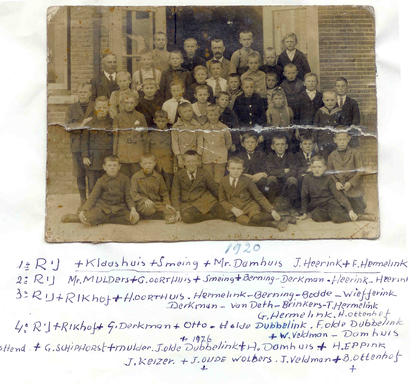 1920
1e RIJ + Klaashuis + Smeing + Mr. Damhuis J. Heerink + F. Hemelink
2e RIJ Mr. MULDERS + G. OORTHUIS + Smeing + Berning - Derkman - Heerink - Heerin
3e RIJ + RIKhof + H. OORTHUIS. Hermelink - Berning - Bodde - Wiefferink
Derkman - van Deth - Brinkers - T. Hermelink
G. Hermelink. H. Ottenhof
4e RIJ + RIKhof + G. Derkman + Otto - H olde Dubbelink. F. olde Dubbelink
+ 1926 + W. Veldman - Damhuis
ottend + G. SCHIPHORST + mulder. J. olde Dubbelink + H. Damhuis + H. EPPINK
J. KEIZER + J. OUDE WOLBERS. J. Veldman + B. Ottenhof
+ +